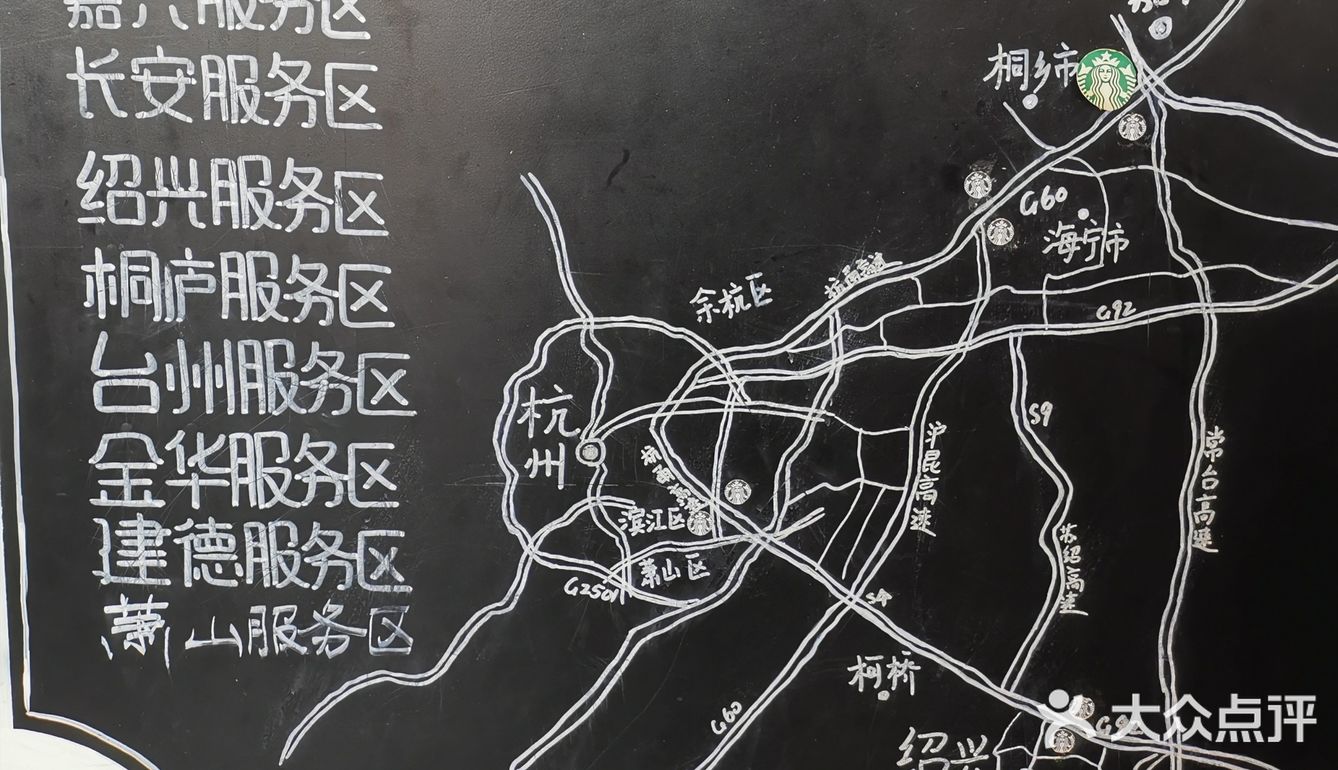 嘉兴服务区
长安服务区
绍兴服务区
桐庐服务区
台州服务区
金华服务区
建德服务区
萧山服务区
桐乡市
G60
海宁市
杭甬高速
余杭区
G92
杭州
S9
沪昆高速
常台高速
杭甬高速
滨江区
萧山区
G2501
苏绍高速
S4
柯桥
G60
G92
绍兴
大众点评